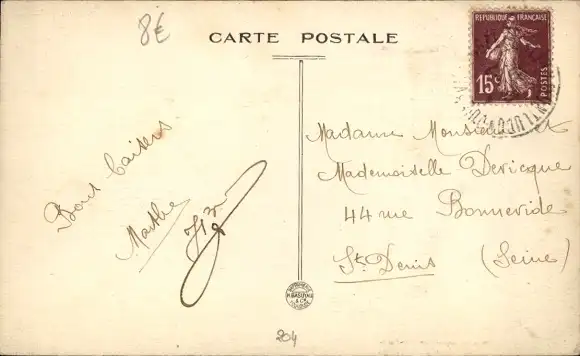 8€
CARTE POSTALE
REPUBLIQUE FRANÇAISE
15c
POSTES
Bons baisers
Marthe
Madame Monsieur et
Mademoiselle Devicque
44 rue Bonnevide
St Denis (Seine)
204